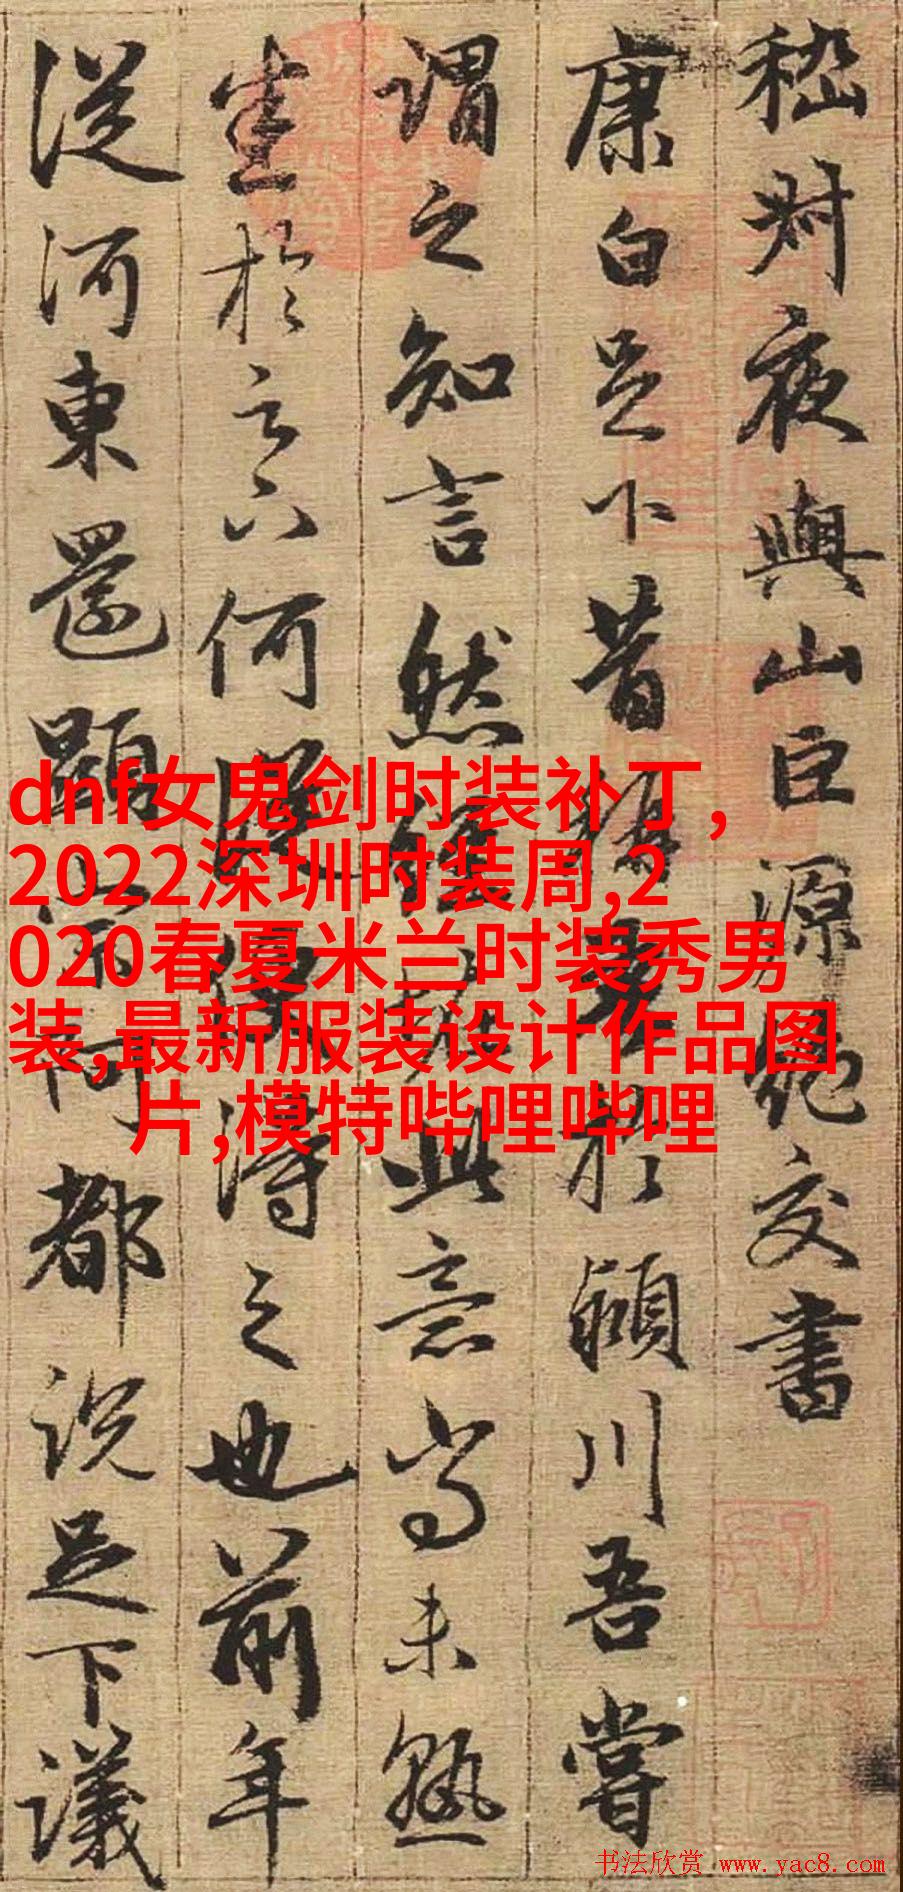 嵇叔夜與山巨源絕交書
康白足下昔稱吾於潁川吾嘗
謂之知言然經怪此意尚未熟
於足下何從便得之也前年
從河東還顯宗阿都說足下議
dnf女鬼剑时装补丁,
2022深圳时装周,2
020春夏米兰时装秀男
装,最新服装设计作品图
片,模特哔哩哔哩
书法欣赏 www.yac8.com